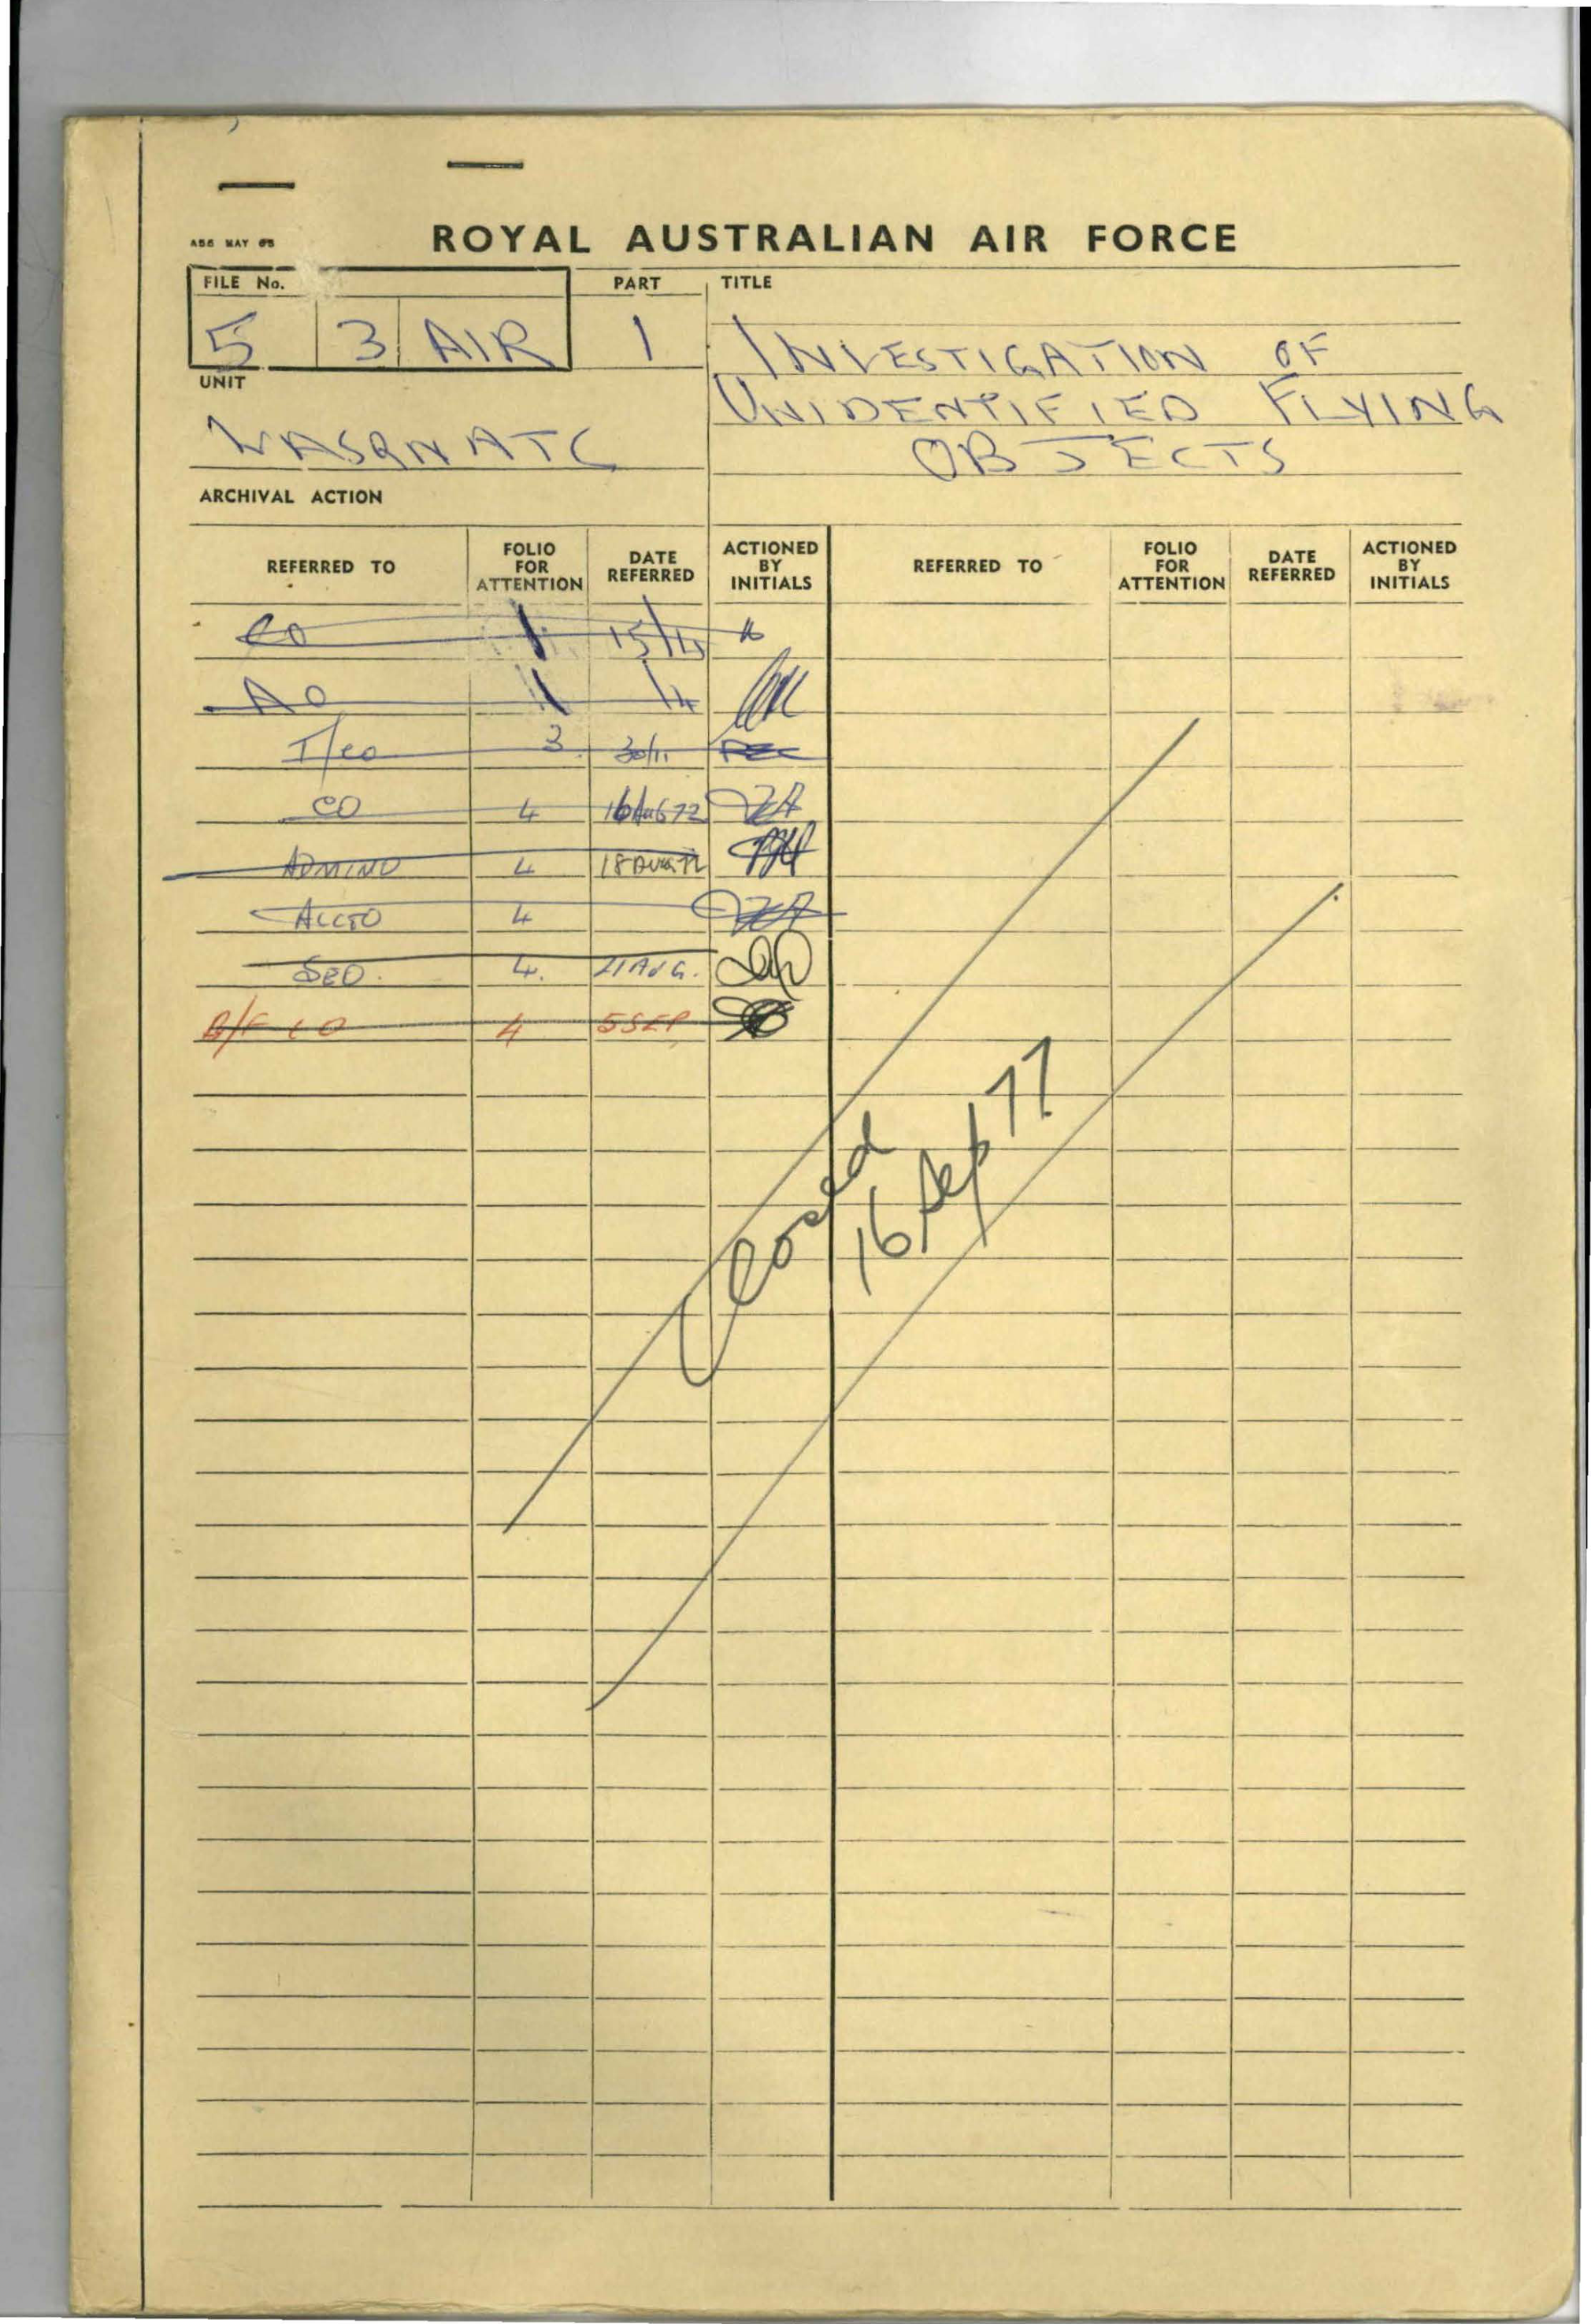 A56 MAY 65
ROYAL AUSTRALIAN AIR FORCE
FILE No. PART TITLE
5 3 AIR 1 INVESTIGATION OF
UNIT
UNIDENTIFIED FLYING
WASQNATC OBJECTS
ARCHIVAL ACTION
REFERRED TO FOLIO FOR ATTENTION DATE REFERRED ACTIONED BY INITIALS REFERRED TO FOLIO FOR ATTENTION DATE REFERRED ACTIONED BY INITIALS
CO 1
AO 1
3 30/11
CO 4 16 AUG 72
ADMINO 4 18 AUG 72
ACCTO 4
SEO. 4. 21 AUG.
B/F CO 4 5 SEP
Closed
16 Sep 77